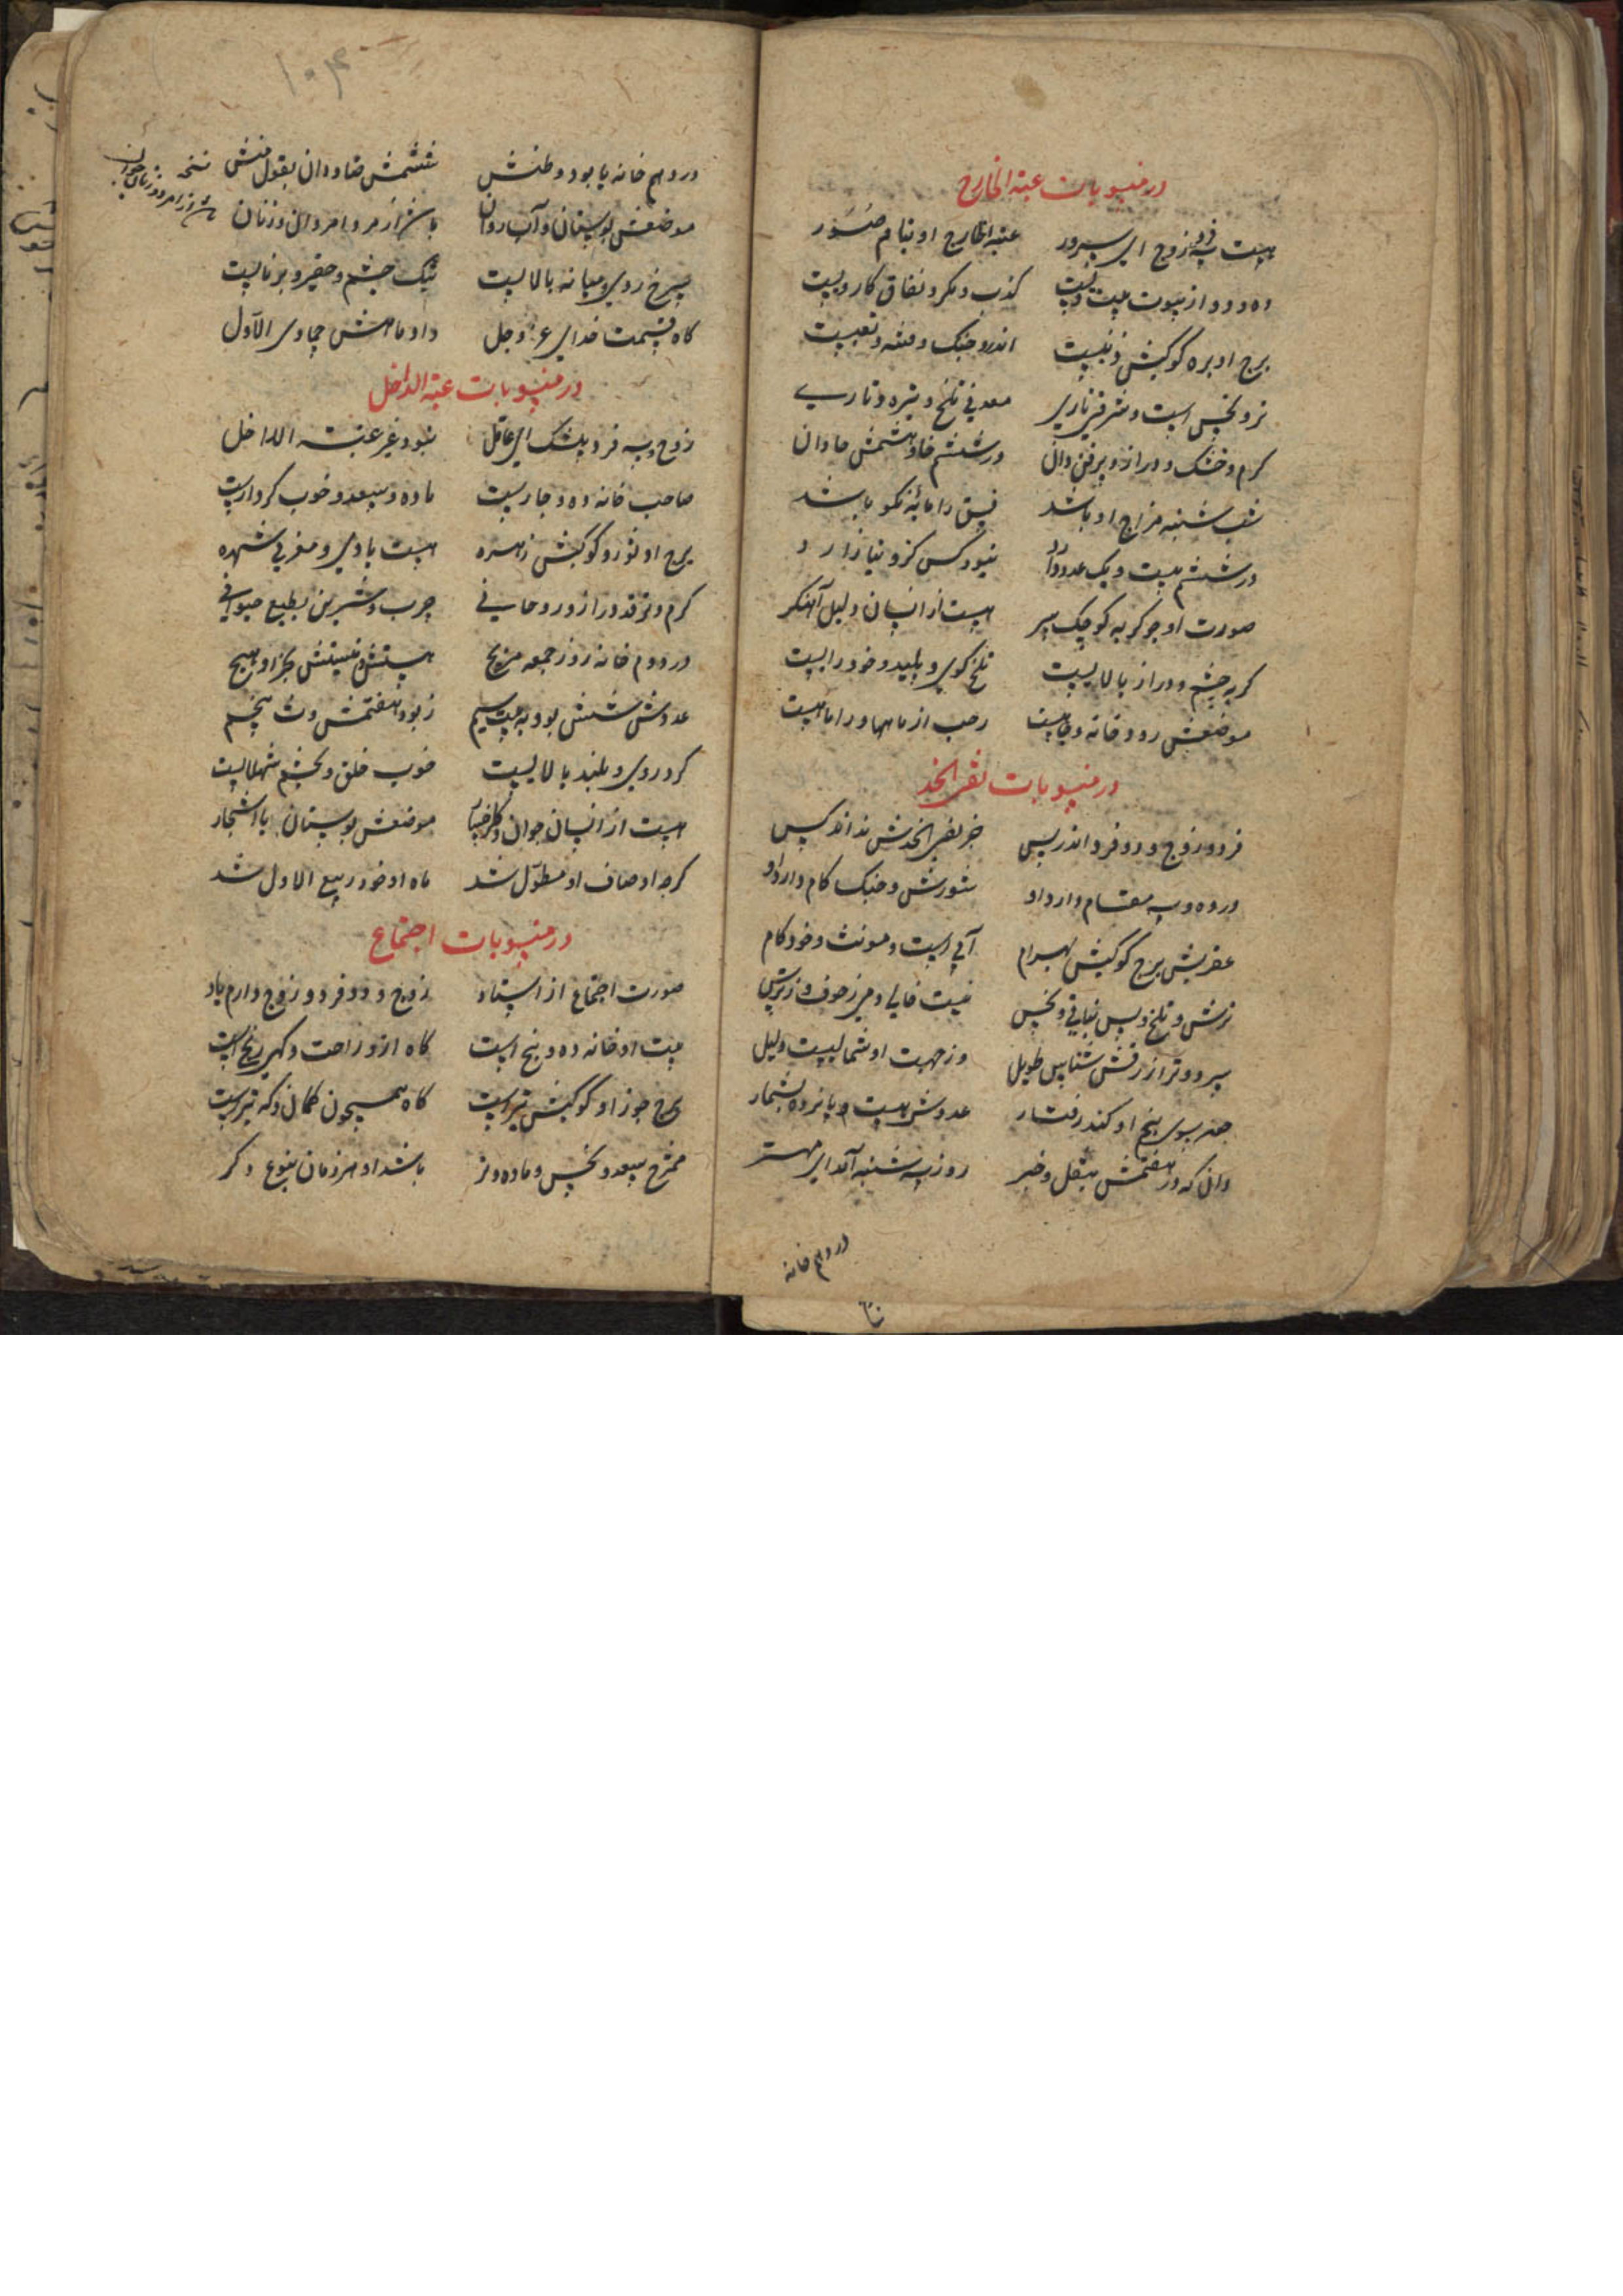 در منسوبات عتبة الخارج
هست سه فرد زوج ای سرور عتبة الخارج او بنام صور
ده و دو از بیوت بیت ویست کذب و مکر و نفاق کار ویست
برج او بره کوکبش ذنبست اندرو جنک و فتنه و تعبست
نر و نحس است و شرقی ناری معدنی تلخ و تیره و تاری
کرم و خشک و دراز و پرفن دان در ششم خا و هشتمش حا دان
شب شنبه مزاج او باشد فسق را مایهٔ نکو باشد
در ششم بیست و یک عدد دارد نبود کس کزو نیازارد
صورت او چو کربه کوچک سر هست از انسان دلیل آهنکر
کربه چشم و دراز بالایست تلخ کوی و پلید و خودرایست
موضعش رودخانه و چاهست رجب از ماهها ورا ماهست
در منسوبات نقی الخد
فرد و زوج و دو فرد اندر پس جز نقی الخدش نداند کس
در ده و سه مقام دارد او شورش و جنک کام دارد او
عقربش برج کوکبش بهرام آبی است و مونث و خودکام
ترش و تلخ و پس نباتی و نحس نیست خالی دمی ز خوف و ز ترس
سرد و تر ازرقش شناس طویل وز جهت او شمالیست دلیل
جفر سوی پنج او کند رفتار عددش بیست و پانزده بشمار
دان که در هفتمش بنقل و خبر روز سه شنبه آمد ای مهتر
در دهم خانه
۱۰۴
در دهم خانه با بود وطنش ششمش ضا و دان بقول منش
موضعش بوستان و آب روان باشد از مرد امردان و زنان
نسخه
باشد از امرد و زنان جوان
سرخ روی و میانه بالایست نیک چشم و حقیر و برنایست
کاه قسمت خدای عز و جل داد ماهش جمادی الاول
در منسوبات عتبة الداخل
زوج و سه فرد بیشک ای عاقل نبود غیر عتبة الداخل
صاحب خانه ده و چارست ماده و سعد و خوب کردارست
برج او ثور و کوکبش زهره هست بادی و مغربی شهره
کرم و تر قد دراز و روحانی چرب و شیرین بطبع حیوانی
در دوم خانه روز جمعه مزیج هستش و نیستش بجز او هیچ
عددش شش بود به بیت سیم ز بود هفتمش و ث پنجم
کرد روی و بلند بالایست خوب خلق و بچشم شهلایست
هست از انسان جوان و کلرخسار موضعش بوستان با اشجار
کرچه اوصاف او مطول شد ماه او خود ربیع الاول شد
در منسوبات اجتماع
صورت اجتماع از استاد زوج و دو فرد و زوج دارم یاد
بیت او خانه ده و پنج است کاه ازو راحت و کهی رنج است
برج جوزا و کوکبش تیر است کاه همچون کمان و که تیر است
ممتزج سعد و نحس و ماده و نر باشد او هر زمان بنوع دکر